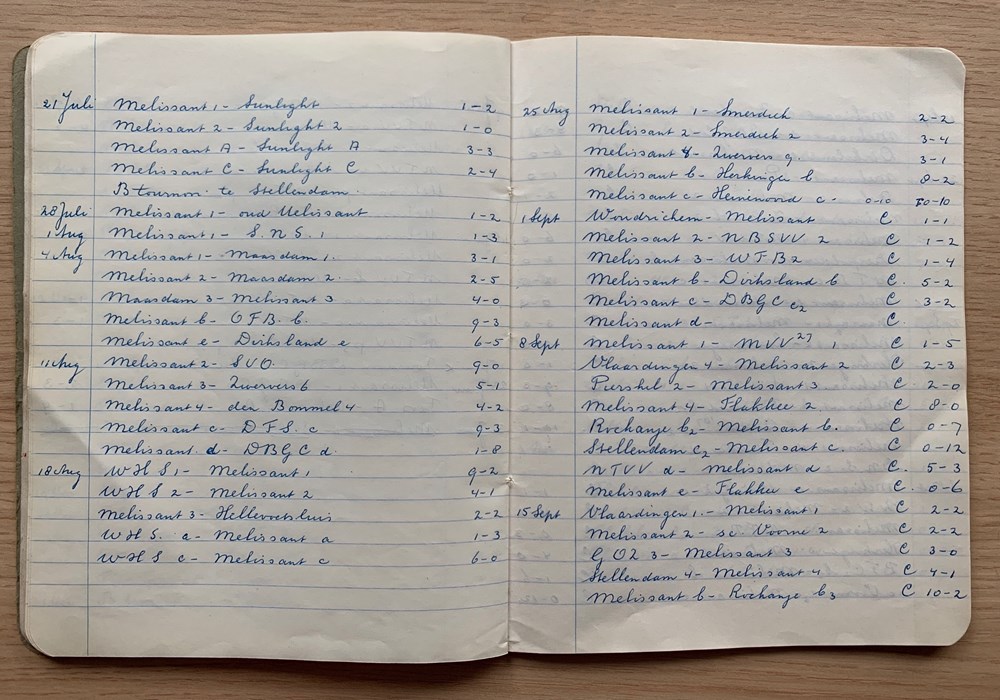 21 Juli Melissant 1 - Sunlight 1-2
Melissant 2 - Sunlight 2 1-0
Melissant A - Sunlight A 3-3
Melissant C - Sunlight C 2-4
B tournooi te Stellendam.
28 Juli Melissant 1 - oud Melissant 1-2
1 Aug Melissant 1 - S.N.S. 1 1-3
4 Aug Melissant 1 - Maasdam 1. 3-1
Melissant 2 - Maasdam 2. 2-5
Maasdam 3 - Melissant 3 4-0
Melissant b - OFB. b. 9-3
Melissant e - Dirksland e 6-5
11 Aug Melissant 2 - SVO. 9-0
Melissant 3 - Zwervers 6 5-1
Melissant 4 - den Bommel 4 4-2
Melissant c - DFS. c 9-3
Melissant d - DBGC d. 1-8
18 Aug WHS 1 - Melissant 1 9-2
WHS 2 - Melissant 2 4-1
Melissant 3 - Hellevoetsluis 2-2
WHS. a - Melissant a 1-3
WHS c - Melissant c 6-0
25 Aug Melissant 1 - Smerdiek 2-2
Melissant 2 - Smerdiek 2 3-4
Melissant - Zwervers 9. 3-1
Melissant b - Herkingen b 8-2
Melissant c - Heinenoord c - 0-10
1 Sept Woudrichem - Melissant C 1-1
Melissant 2 - NBSVV 2 C 1-2
Melissant 3 - WFB2 C 1-4
Melissant b - Dirksland b C. 5-2
Melissant c - DBGC c2 C 3-2
Melissant d - C.
8 Sept Melissant 1 - MVV 27 1 C 1-5
Vlaardingen 4 - Melissant 2 C 2-3
Piershil 2 - Melissant 3 C 2-0
Melissant 4 - Flakkee 2 C 8-0
Rockanje b2 - Melissant b. C 0-7
Stellendam c2 - Melissant c. C 0-12
NTVV d - Melissant d C. 5-3
Melissant e - Flakkee e C. 0-6
15 Sept Vlaardingen 1. - Melissant 1 C 2-2
Melissant 2 - sc. Voorne 2 C 2-2
GOZ 3 - Melissant 3 C 3-0
Stellendam 4 - Melissant 4 C 4-1
Melissant b - Rockanje b3 C 10-2